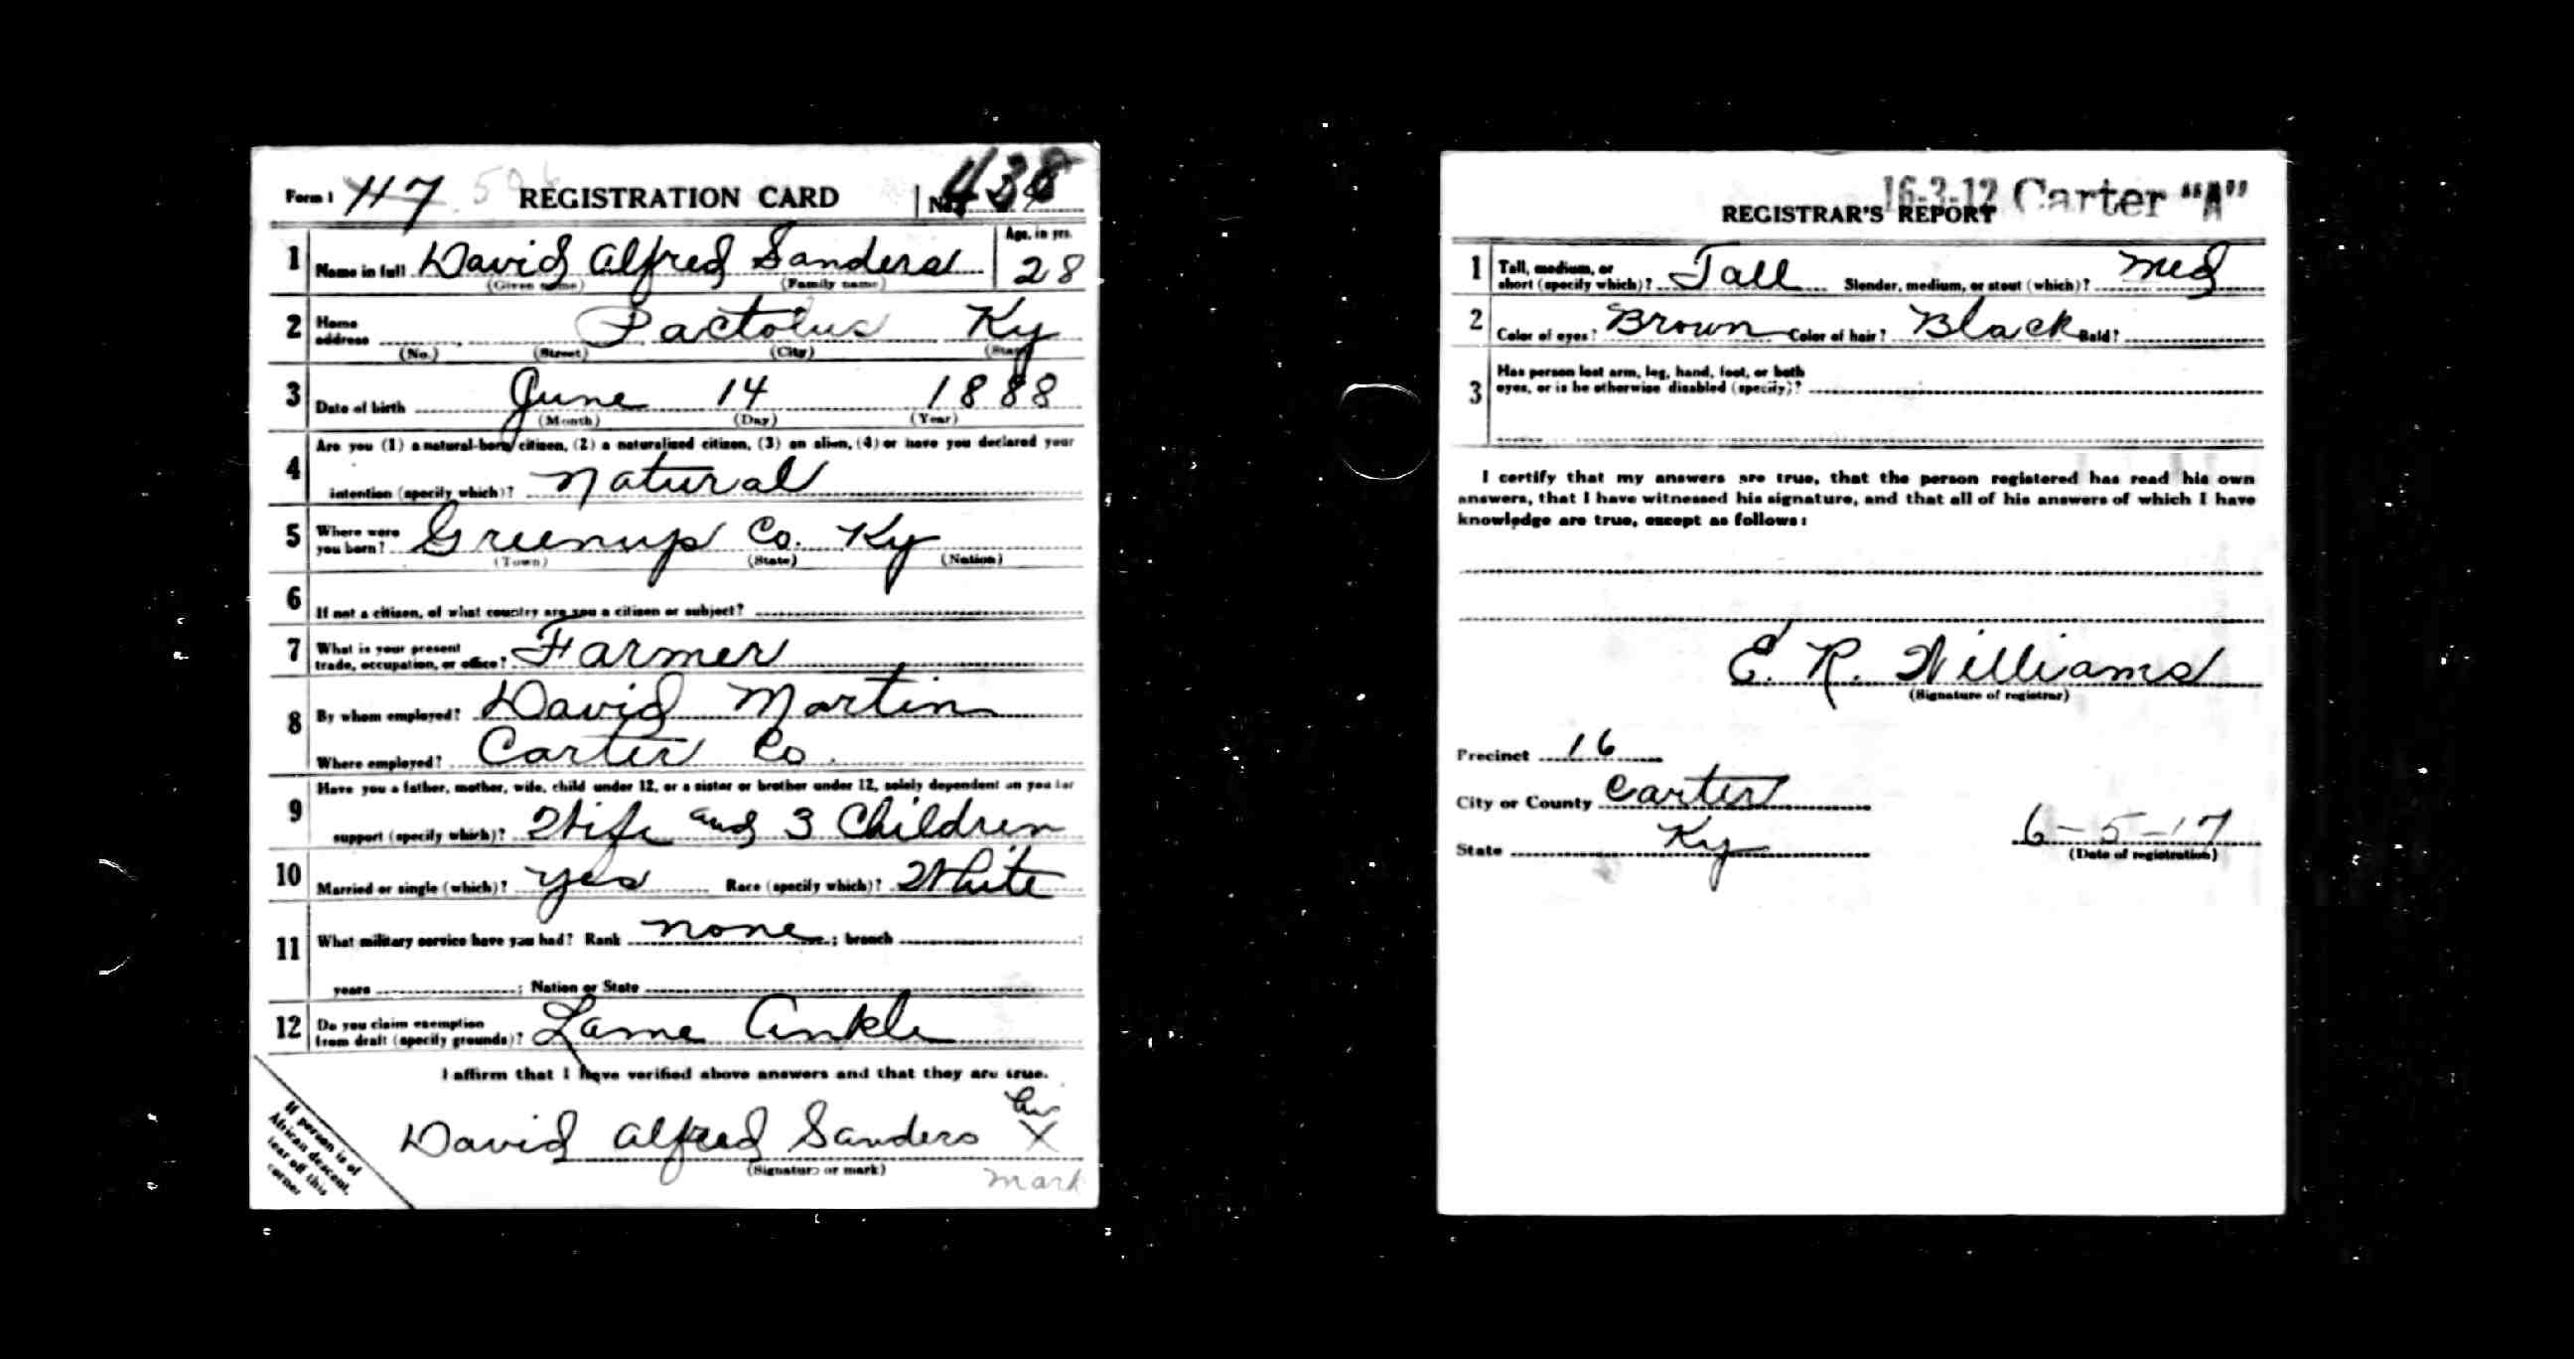 Form 1 117 506 REGISTRATION CARD No. 438
1 Name in full David Alfred Sanders Age, in yrs. 28
(Given name) (Family name)
2 Home address Pactolus Ky
(No.) (Street) (City) (State)
3 Date of birth June 14 1888
(Month) (Day) (Year)
4 Are you (1) a natural-born citizen, (2) a naturalized citizen, (3) an alien, (4) or have you declared your
intention (specify which)? Natural
5 Where were you born? Greenup Co. Ky
(Town) (State) (Nation)
6 If not a citizen, of what country are you a citizen or subject?
7 What is your present trade, occupation, or office? Farmer
8 By whom employed? David Martin
Where employed? Carter Co.
9 Have you a father, mother, wife, child under 12, or a sister or brother under 12, solely dependent on you for
support (specify which)? Wife and 3 Children
10 Married or single (which)? yes Race (specify which)? White
11 What military service have you had? Rank none ; branch
years ; Nation or State
12 Do you claim exemption from draft (specify grounds)? Lame Ankle
I affirm that I have verified above answers and that they are true.
David Alfred Sanders his X mark
(Signature or mark)
If person is of
African descent,
tear off this
corner
16-3-12 Carter "A"
REGISTRAR'S REPORT
1 Tall, medium, or short (specify which)? Tall Slender, medium, or stout (which)? Med
2 Color of eyes? Brown Color of hair? Black Bald?
3 Has person lost arm, leg, hand, foot, or both
eyes, or is he otherwise disabled (specify)?
I certify that my answers are true, that the person registered has read his own
answers, that I have witnessed his signature, and that all of his answers of which I have
knowledge are true, except as follows:
E. R. Williams
(Signature of registrar)
Precinct 16
City or County Carter
State Ky 6-5-17
(Date of registration)